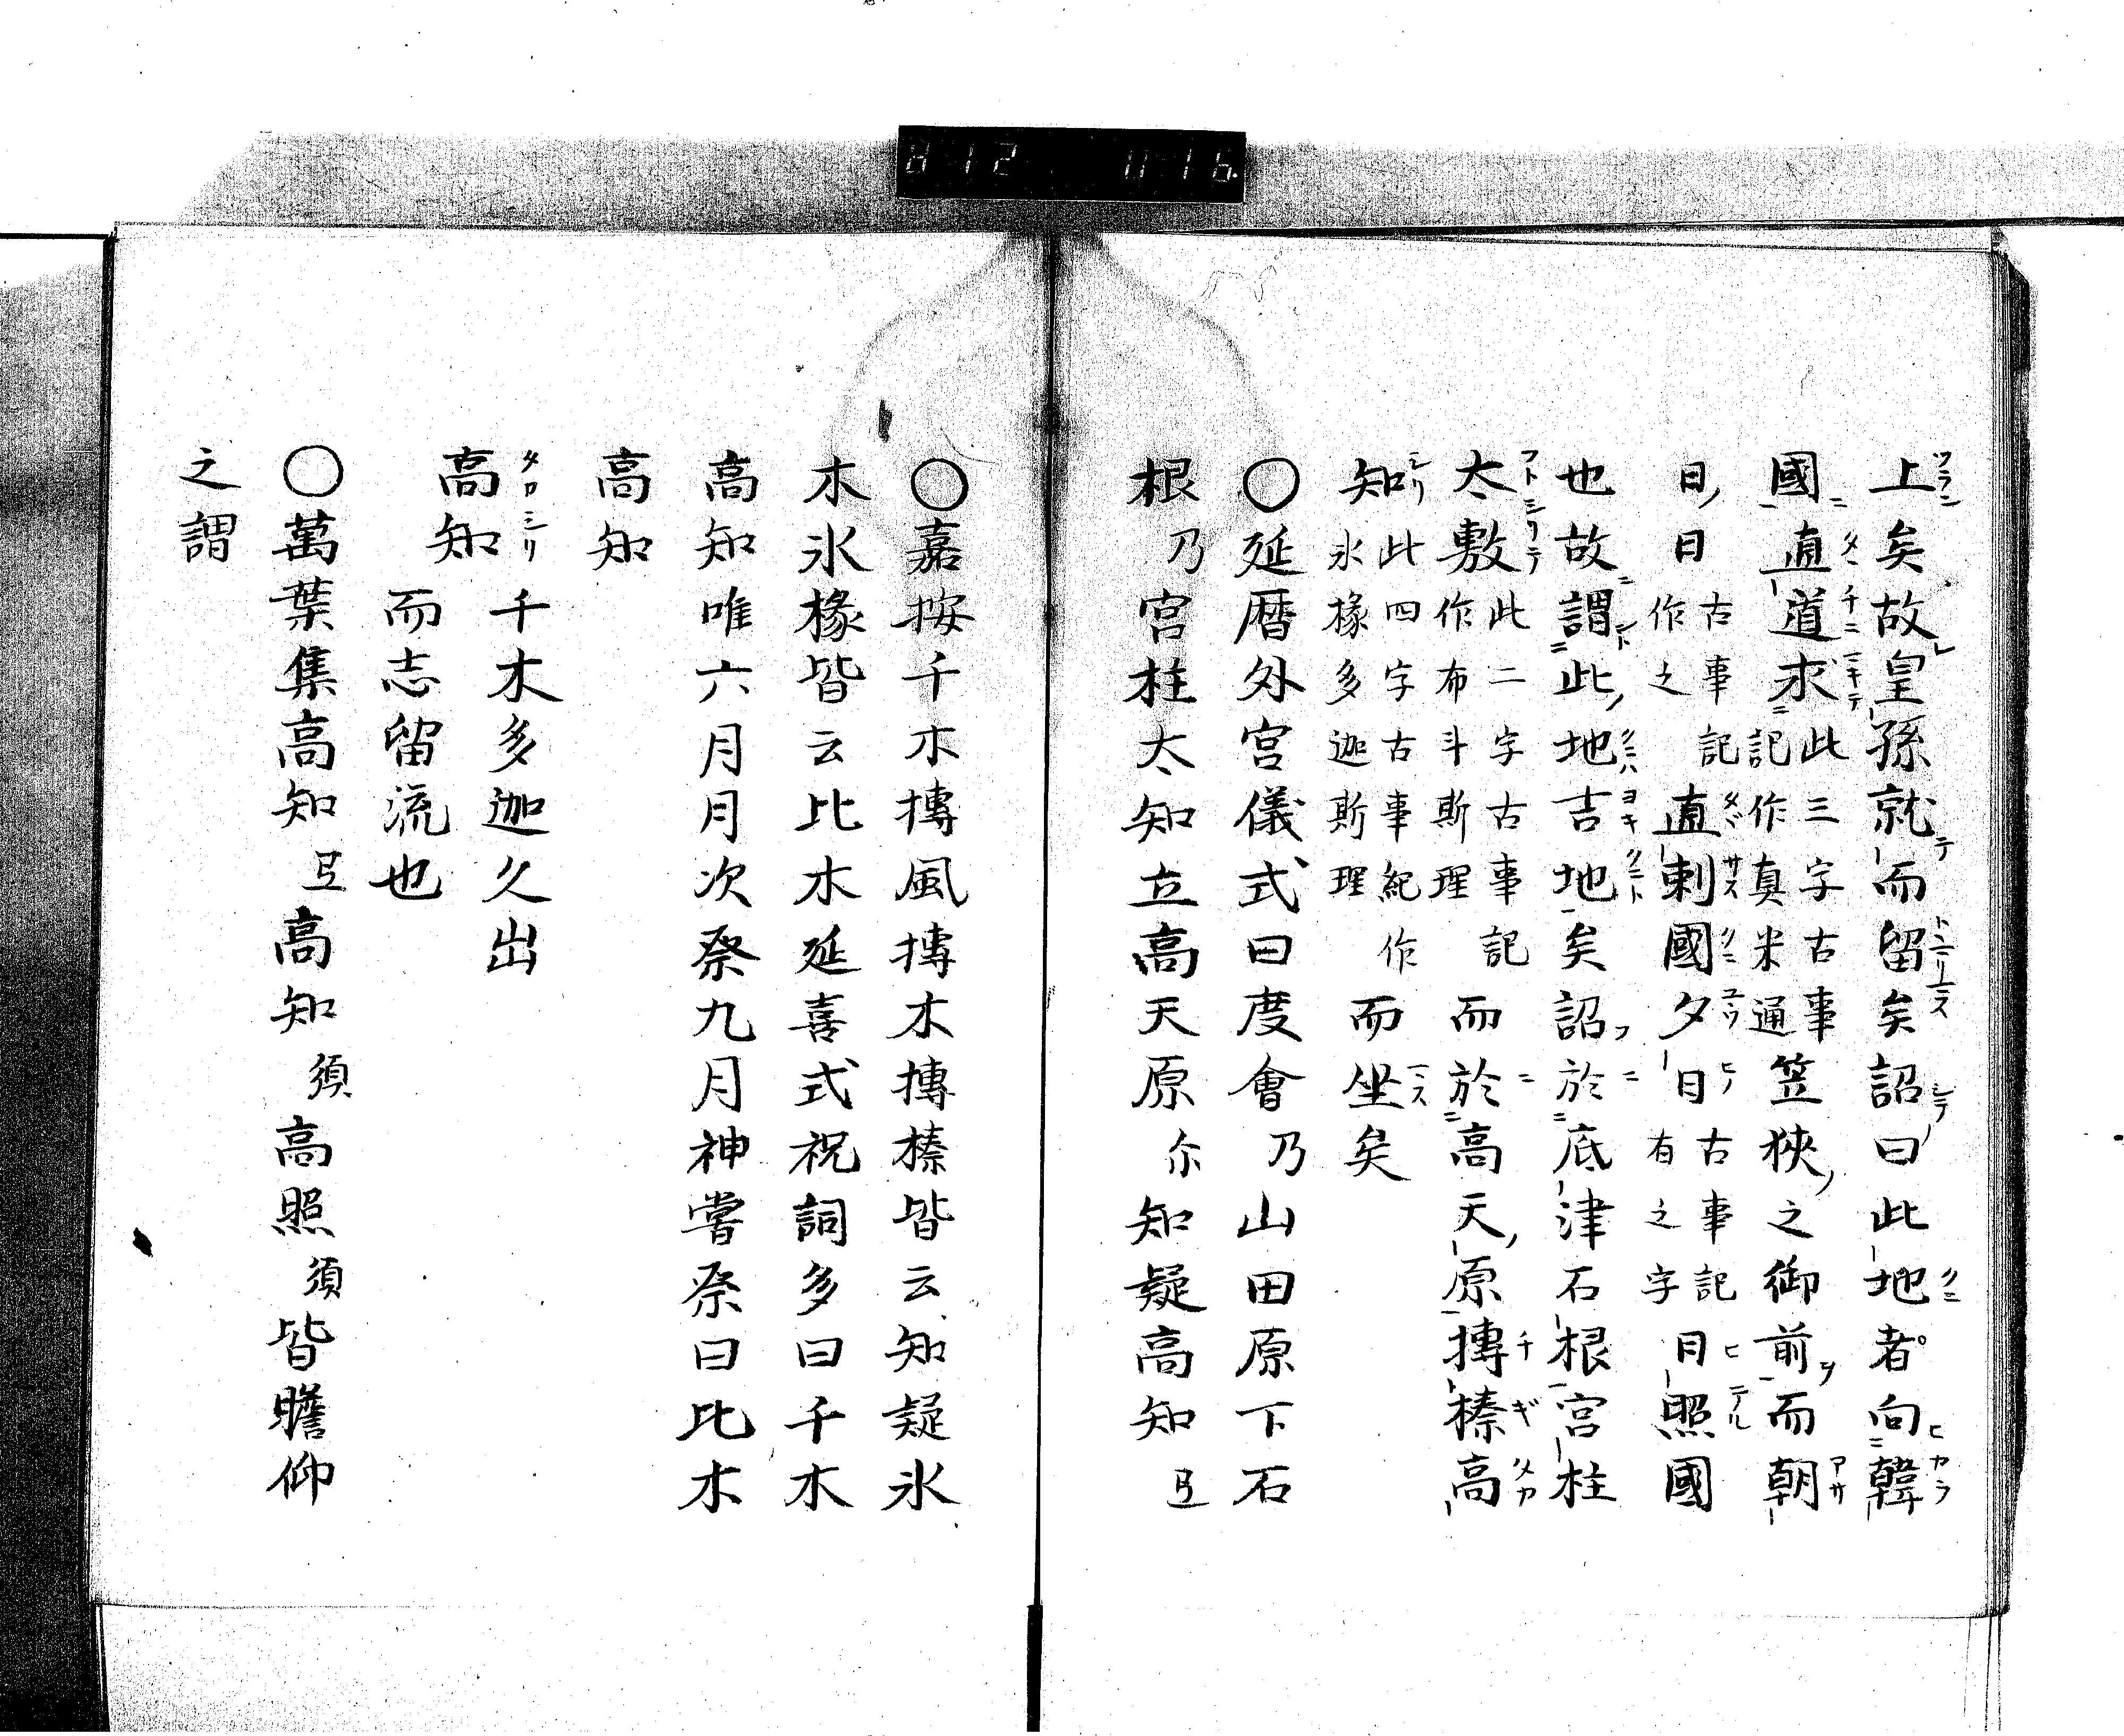 上矣故皇孫就而留矣詔曰此地者向韓
國直道求此三字古事記作真米通笠狹之御前而朝
日日古事記作之直刺國夕日古事記有之字日照國
也故謂此地吉地矣詔於底津石根宮柱
太敷此二字古事記作布斗斯理而於高天原搏榛高
知此四字古事紀作氷椽多迦斯理而坐矣
○延曆外宮儀式曰度會乃山田原下石
根乃宮柱太知立高天原尓知疑高知
○嘉按千木搏風搏木搏榛皆云知疑氷
木氷椽皆云比木延喜式祝詞多曰千木
高知唯六月月次祭九月神嘗祭曰比木
高知
高知千木多迦久出
而志留流也
○萬葉集高知高知須高照須皆瞻仰
之謂
8 12 11 16